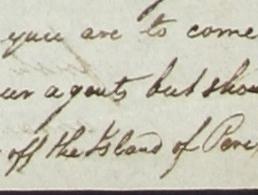 you are to come
our agents but sho
off the Island of Pere